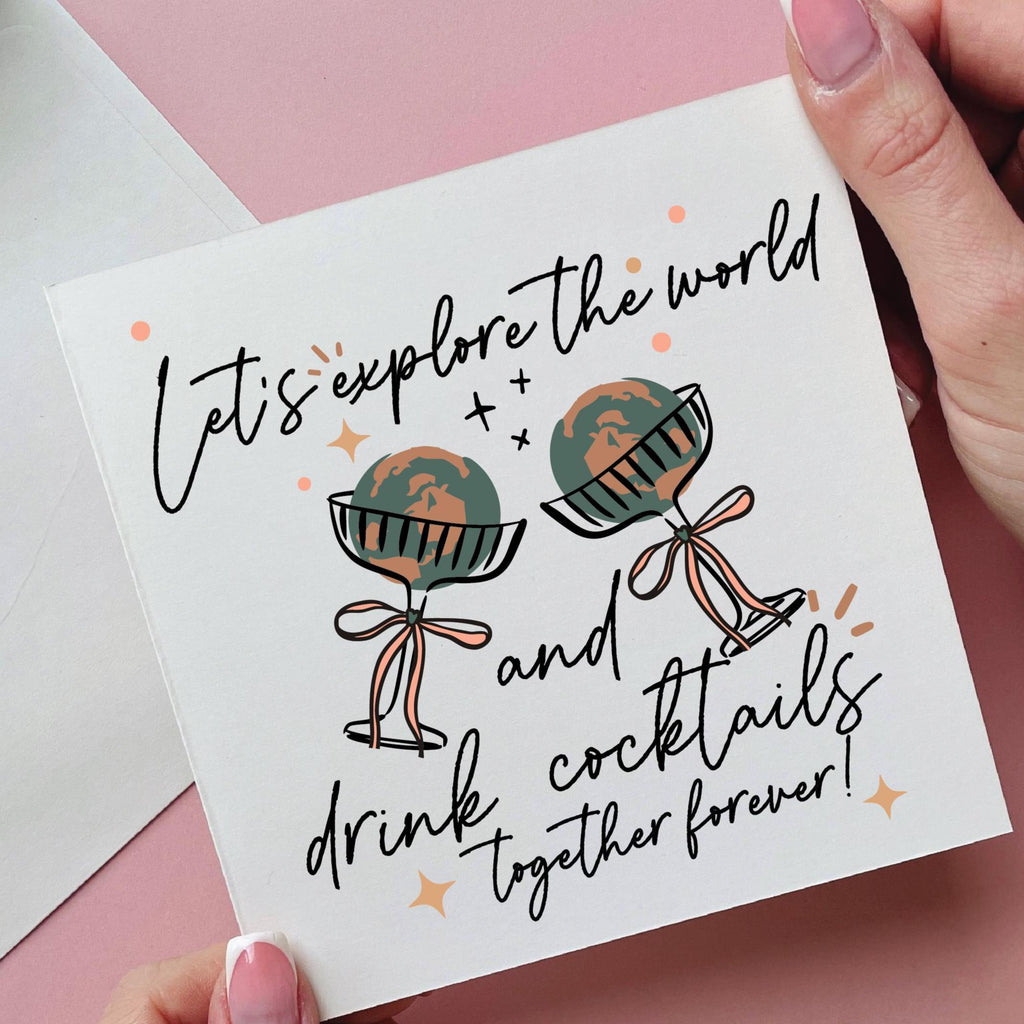 Let's explore the world
and
drink cocktails
together forever!